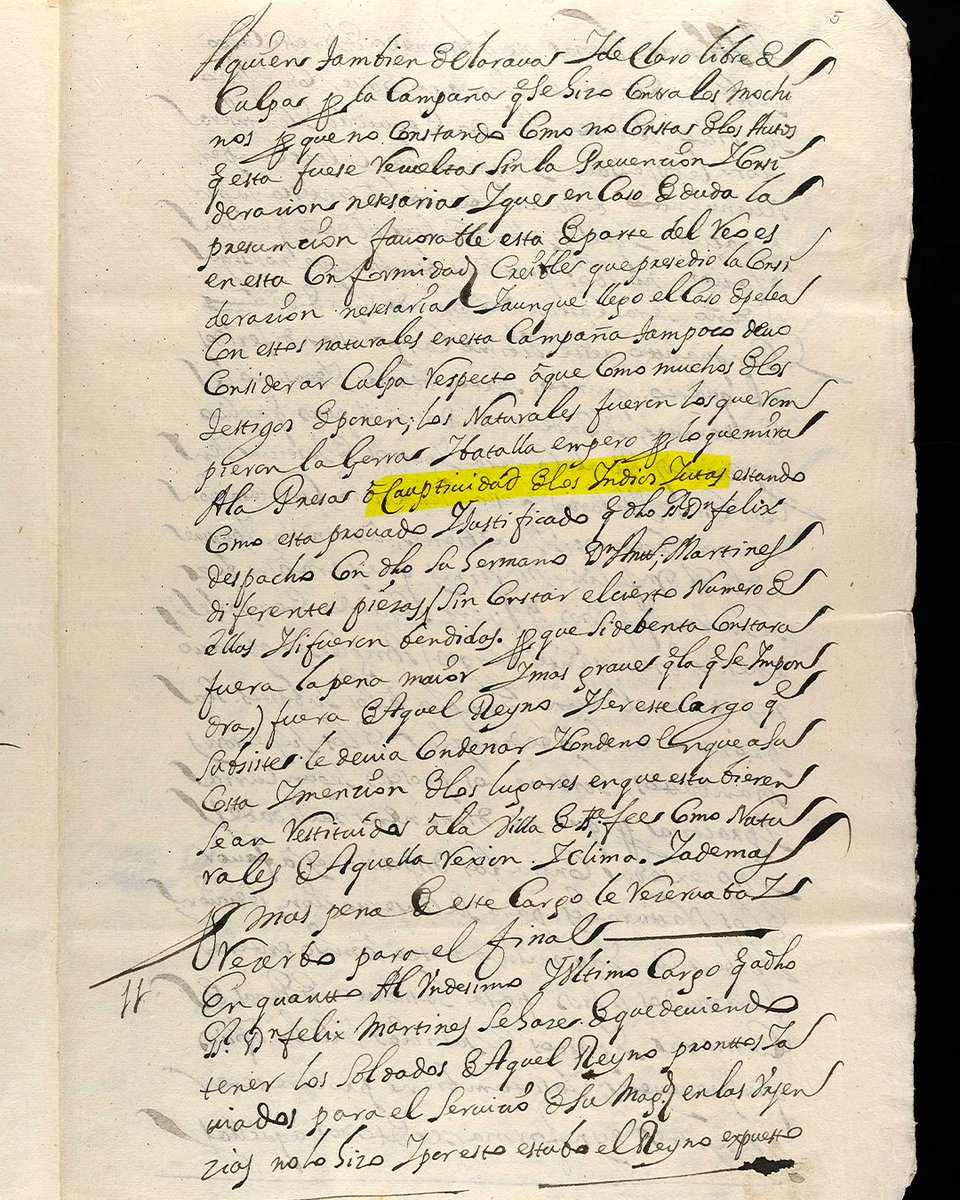 5
Aquiens tambien declaravas Ydeclaro libre de
Culpas p la Campaña q se hizo Contra los Mochi
nos p que no Constando Como no Constas de los Autos
q esta fuese Resueltas Sin la Prevencion Yconsi
deracion nesesarias Yques en Caso de duda la
presumcion favorable esta de parte del Reo es
en esta Conformidad Creibles que presedio la Consi
deracion nesesarias Yaunque llego el Caso de pelea
Con estos naturales en esta Campaña tampoco devo
Considerar Culpa Respecto â que Como muchos de los
testigos deponen; los Naturales fueron los que Rom
pieron la Gerras Ybatalla empero p lo que mira
A la Presas ô Cauptividad de los Indios Yutas estando
Como esta provado Yjustificado q dho Dn felix
despacho Con dho su hermano Dn Antt. Martines
diferentes piezas (Sin Constar el cierto Numero de
ellas Ysi fueron bendidas. p que si de benta Constara
fuera la pena maior Ymas graves q la q se Impon
dra,) fuera de Aquel Reyno Yser este Cargo q
Subsistes le devia Condenar Ycondeno en que a su
Costa Ymencion de los lugares en que estubieren
sean Restituidos â la Villa de Sta. fee Como Natu
rales de Aquella Rexion Yclima. Yademas
Ymas pena de este Cargo le Reservaba Y
Reserbo para el final
11.
En quantto Al Undesimo Yultimo Cargo q a dho
Dn felix Martines se hase. de que deviendo
tener los Soldados de Aquel Reyno pronttos Ya
viados para el Servicio de su Magd. en las Urjen
zias no lo hizo Yporesto estabo el Reyno expuesto